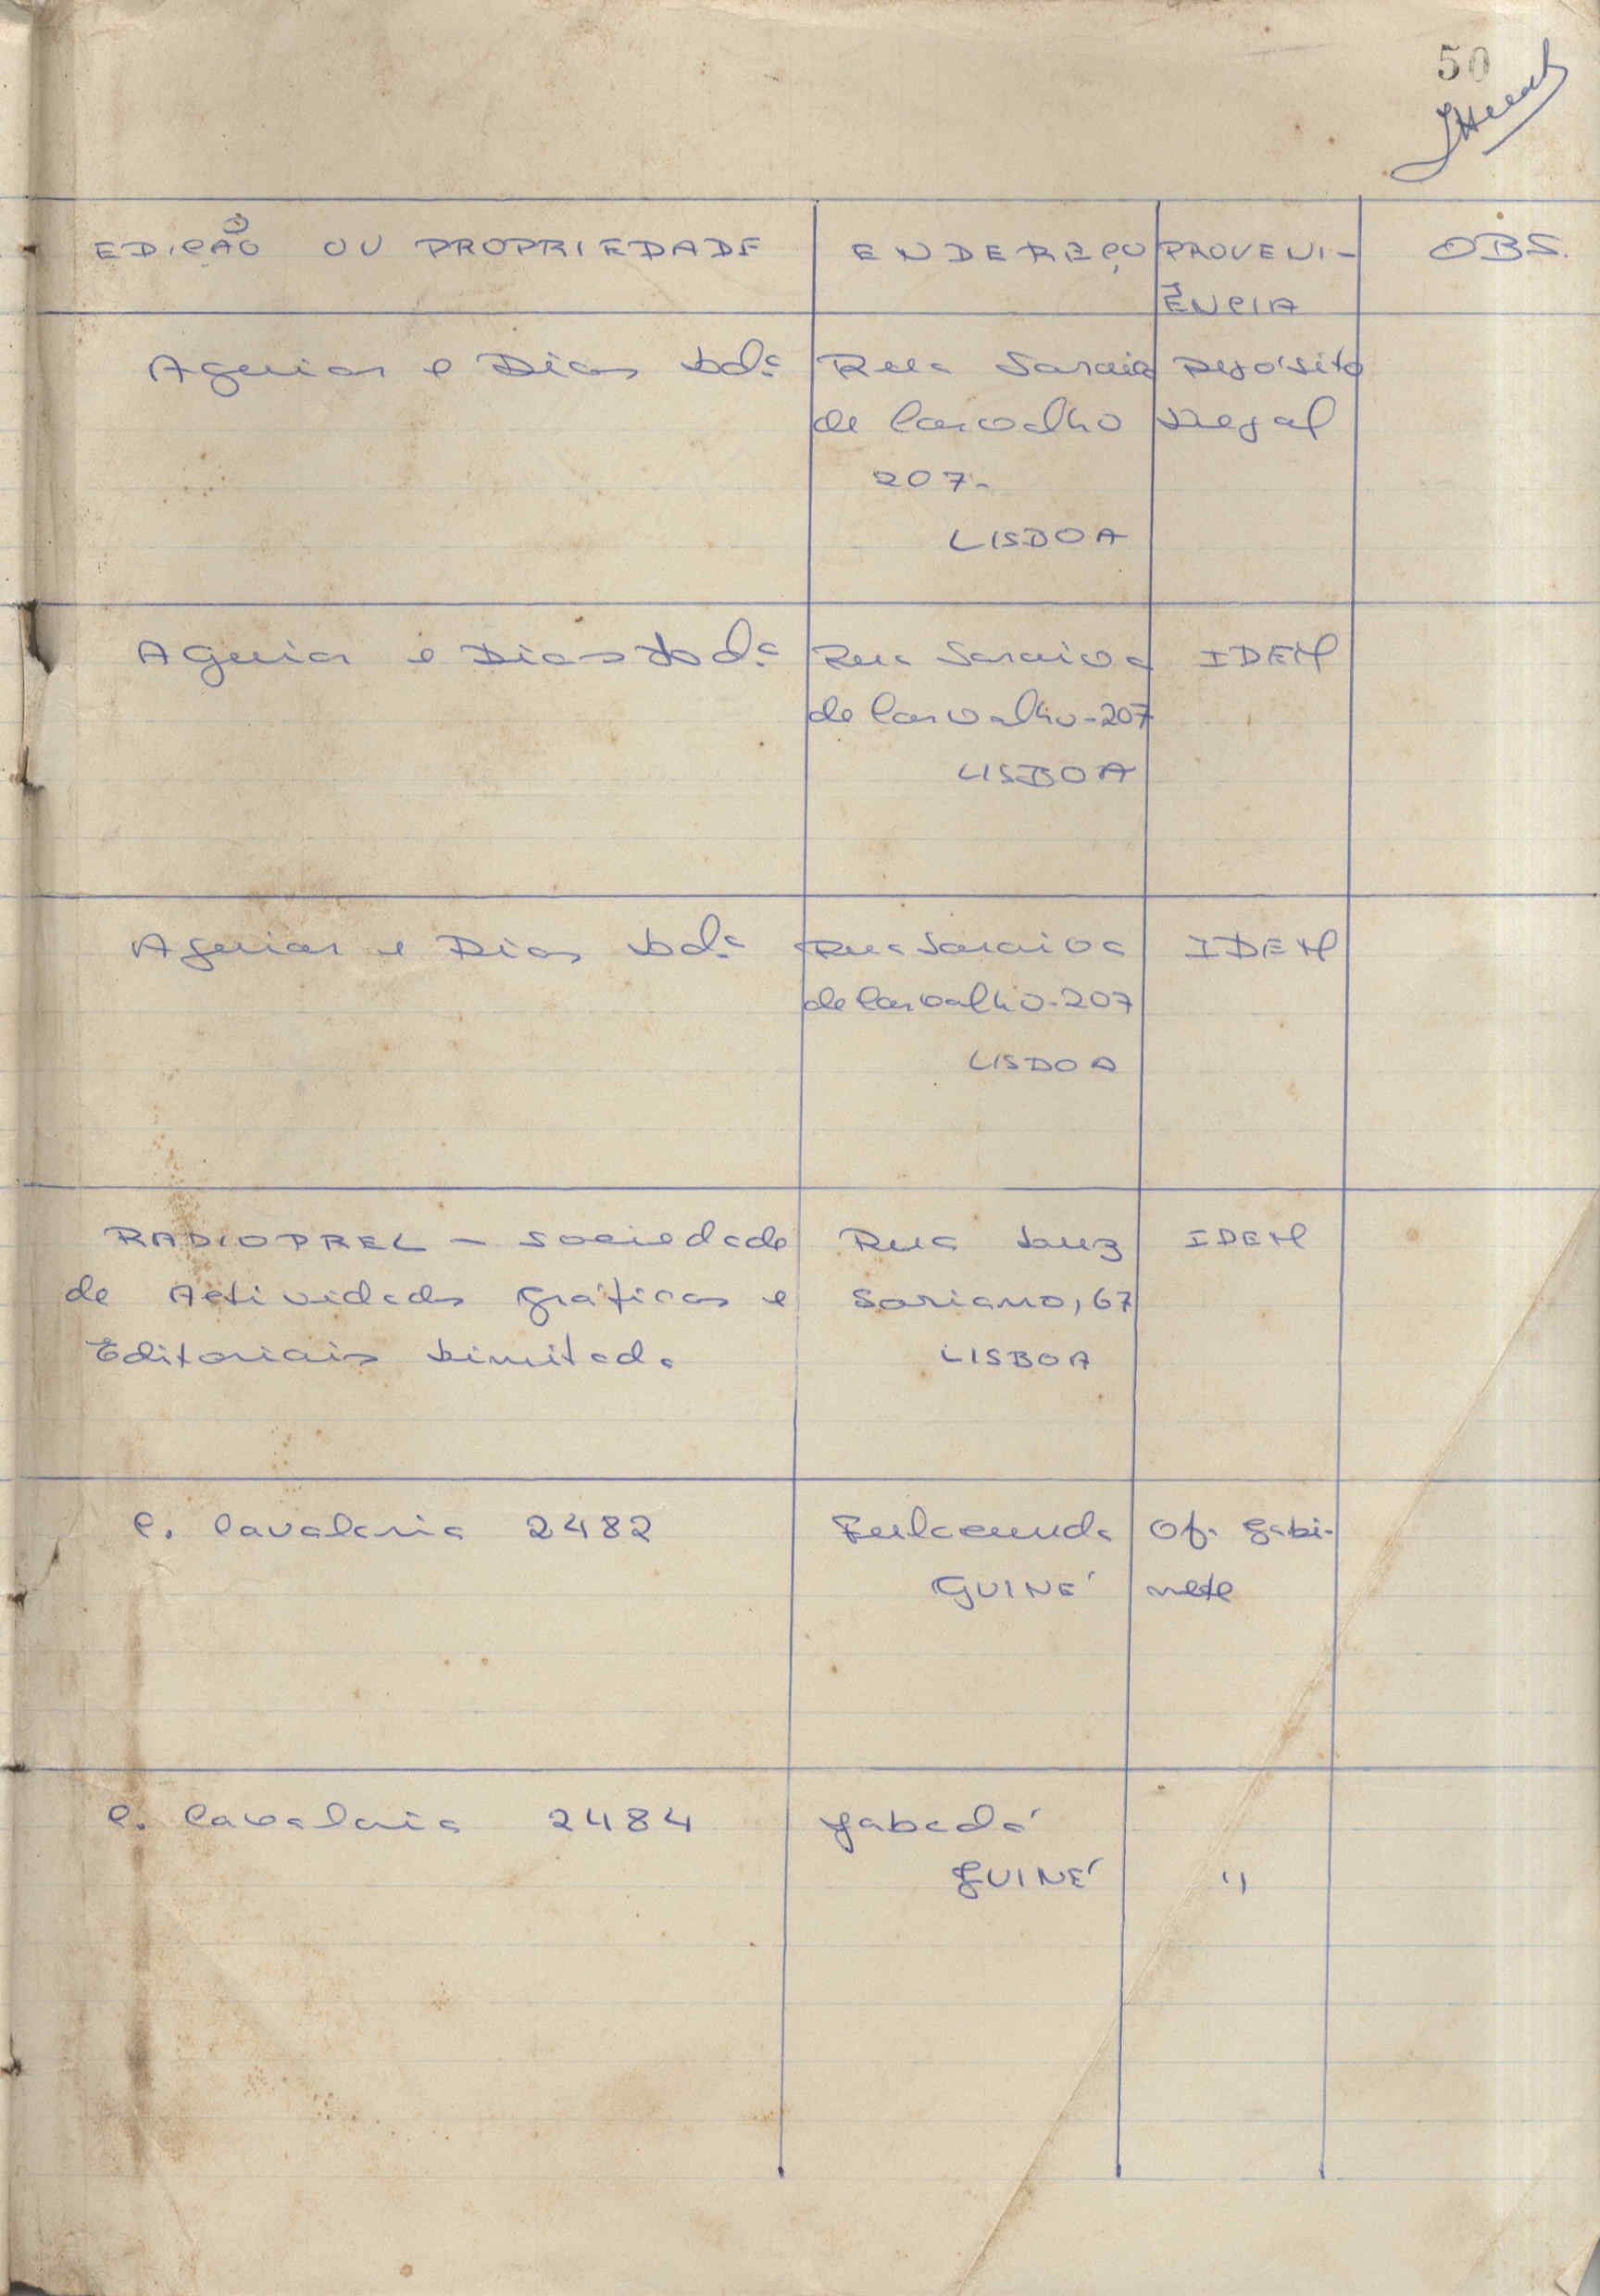 50
EDIÇÃO OU PROPRIEDADE ENDEREÇO PROVENI-
ÊNCIA OBS.
Aguiar e Dias Ldª Rua Saraiva Depósito
de Carvalho Legal
207-
LISBOA
Aguiar e Dias Ldª Rua Saraiva IDEM
de Carvalho-207
LISBOA
Aguiar e Dias Ldª Rua Saraiva IDEM
de Carvalho-207
LISBOA
RADIOPREL - Sociedade Rua Luz IDEM
de Actividades Gráficas e Soriano, 67
Editoriais Limitada LISBOA
C. Cavalaria 2482 Fulacunda Of. Gabi-
GUINÉ nete
C. Cavalaria 2484 Jabadá
GUINÉ "